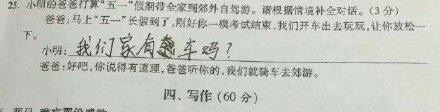 25. 小明的爸爸打算"五一"假期带全家到郊外自驾游。请根据情境补全对话。(3分)
爸爸:马上"五一"长假到了,刚好你一模考试结束,我们开车出去玩玩,让你放松一
下。
小明:我们家有车吗?
爸爸:好吧,你说得有道理,爸爸听你的,我们就骑车去郊游。
四、写作(60分)